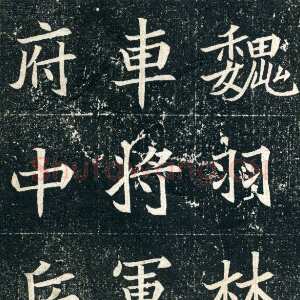 魏羽林
車將軍
府中兵